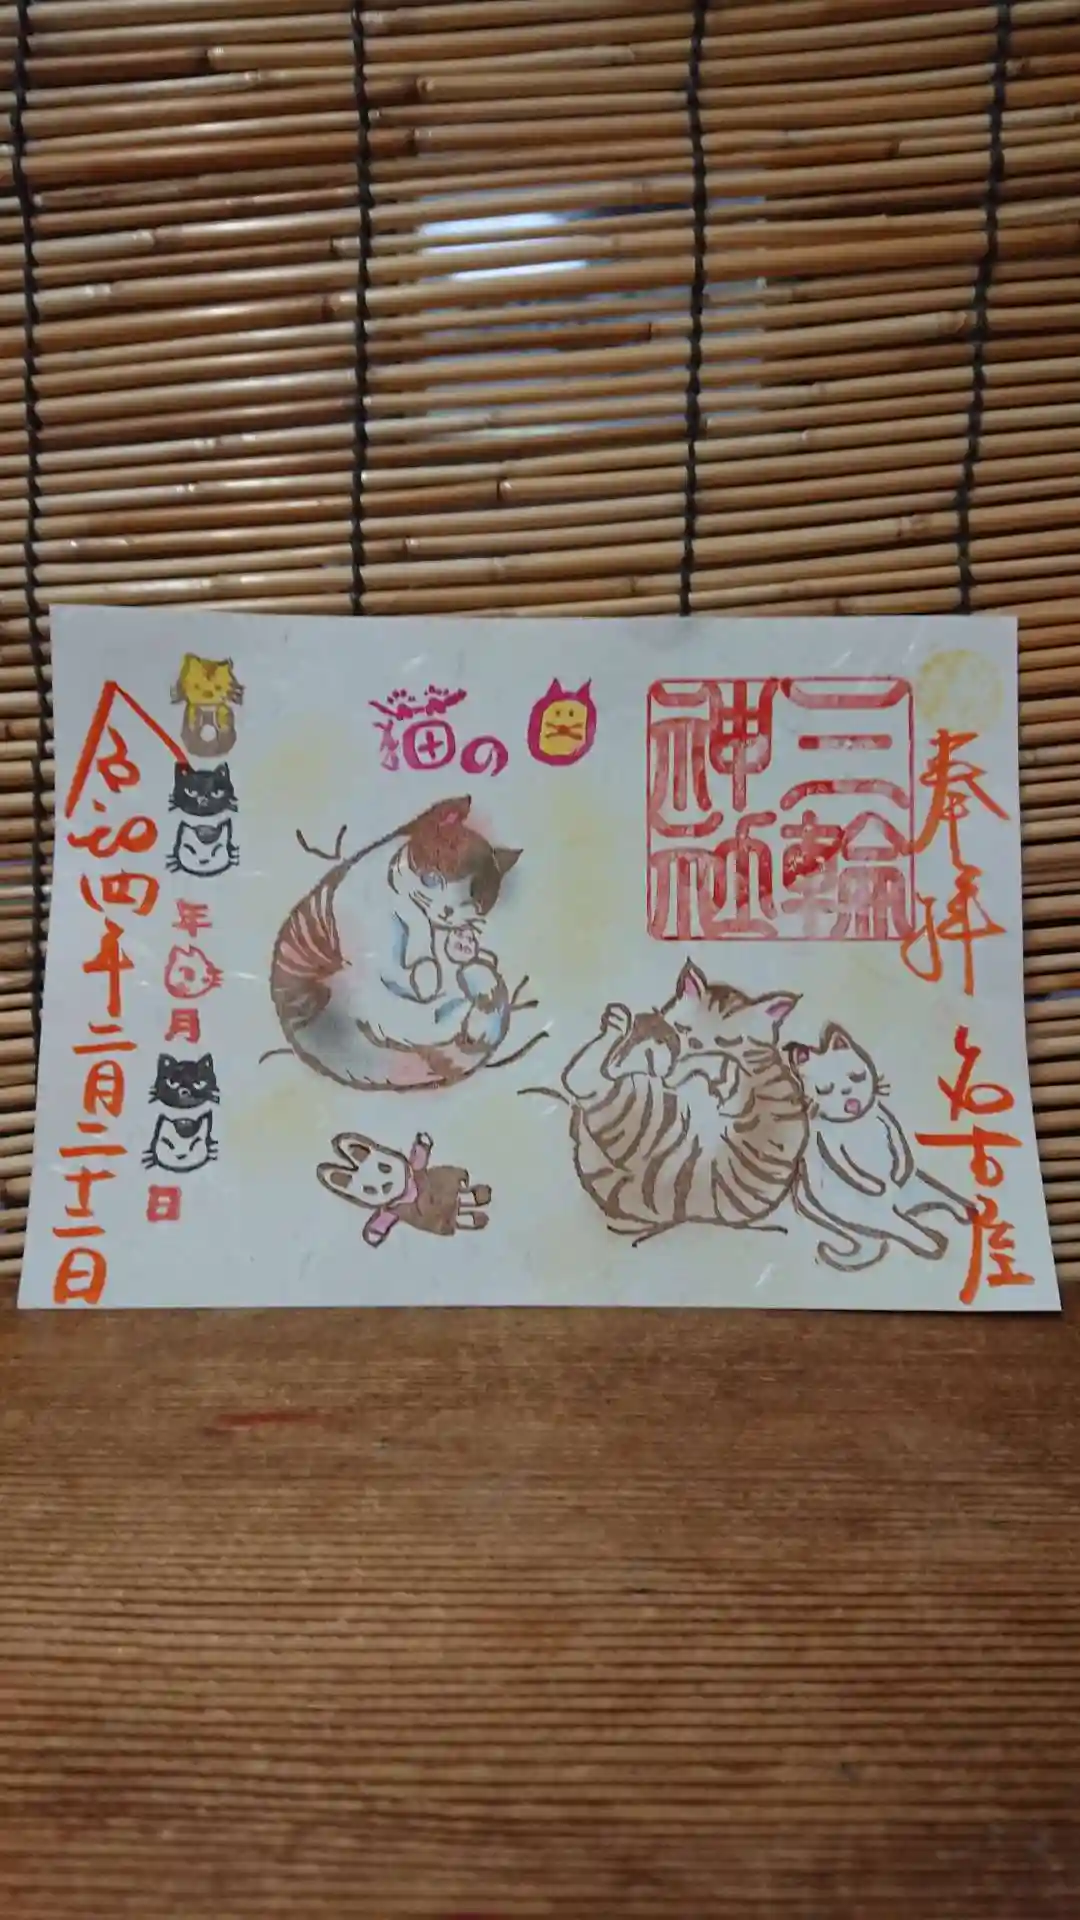 奉拝 名古屋
三輪
神社
猫の
年
月
日
令和四年二月二十二日